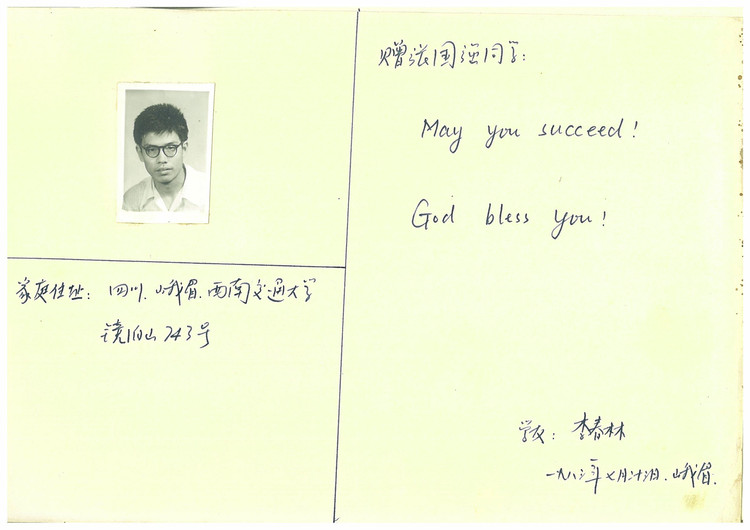 家庭住址：四川.峨眉.西南交通大学
镜泊山743号
赠张国强同学：
May you succeed!
God bless you!
学友：李春林
一九八三年七月 峨眉.